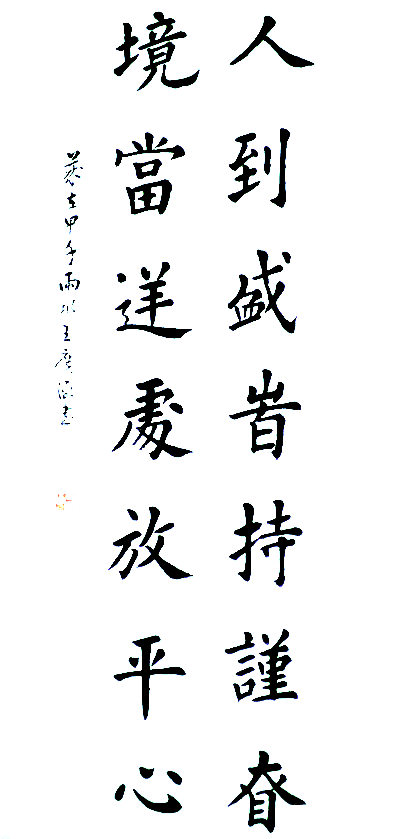 人到盛旹持謹眘
境當逆處放平心
歲在甲午雨水王書